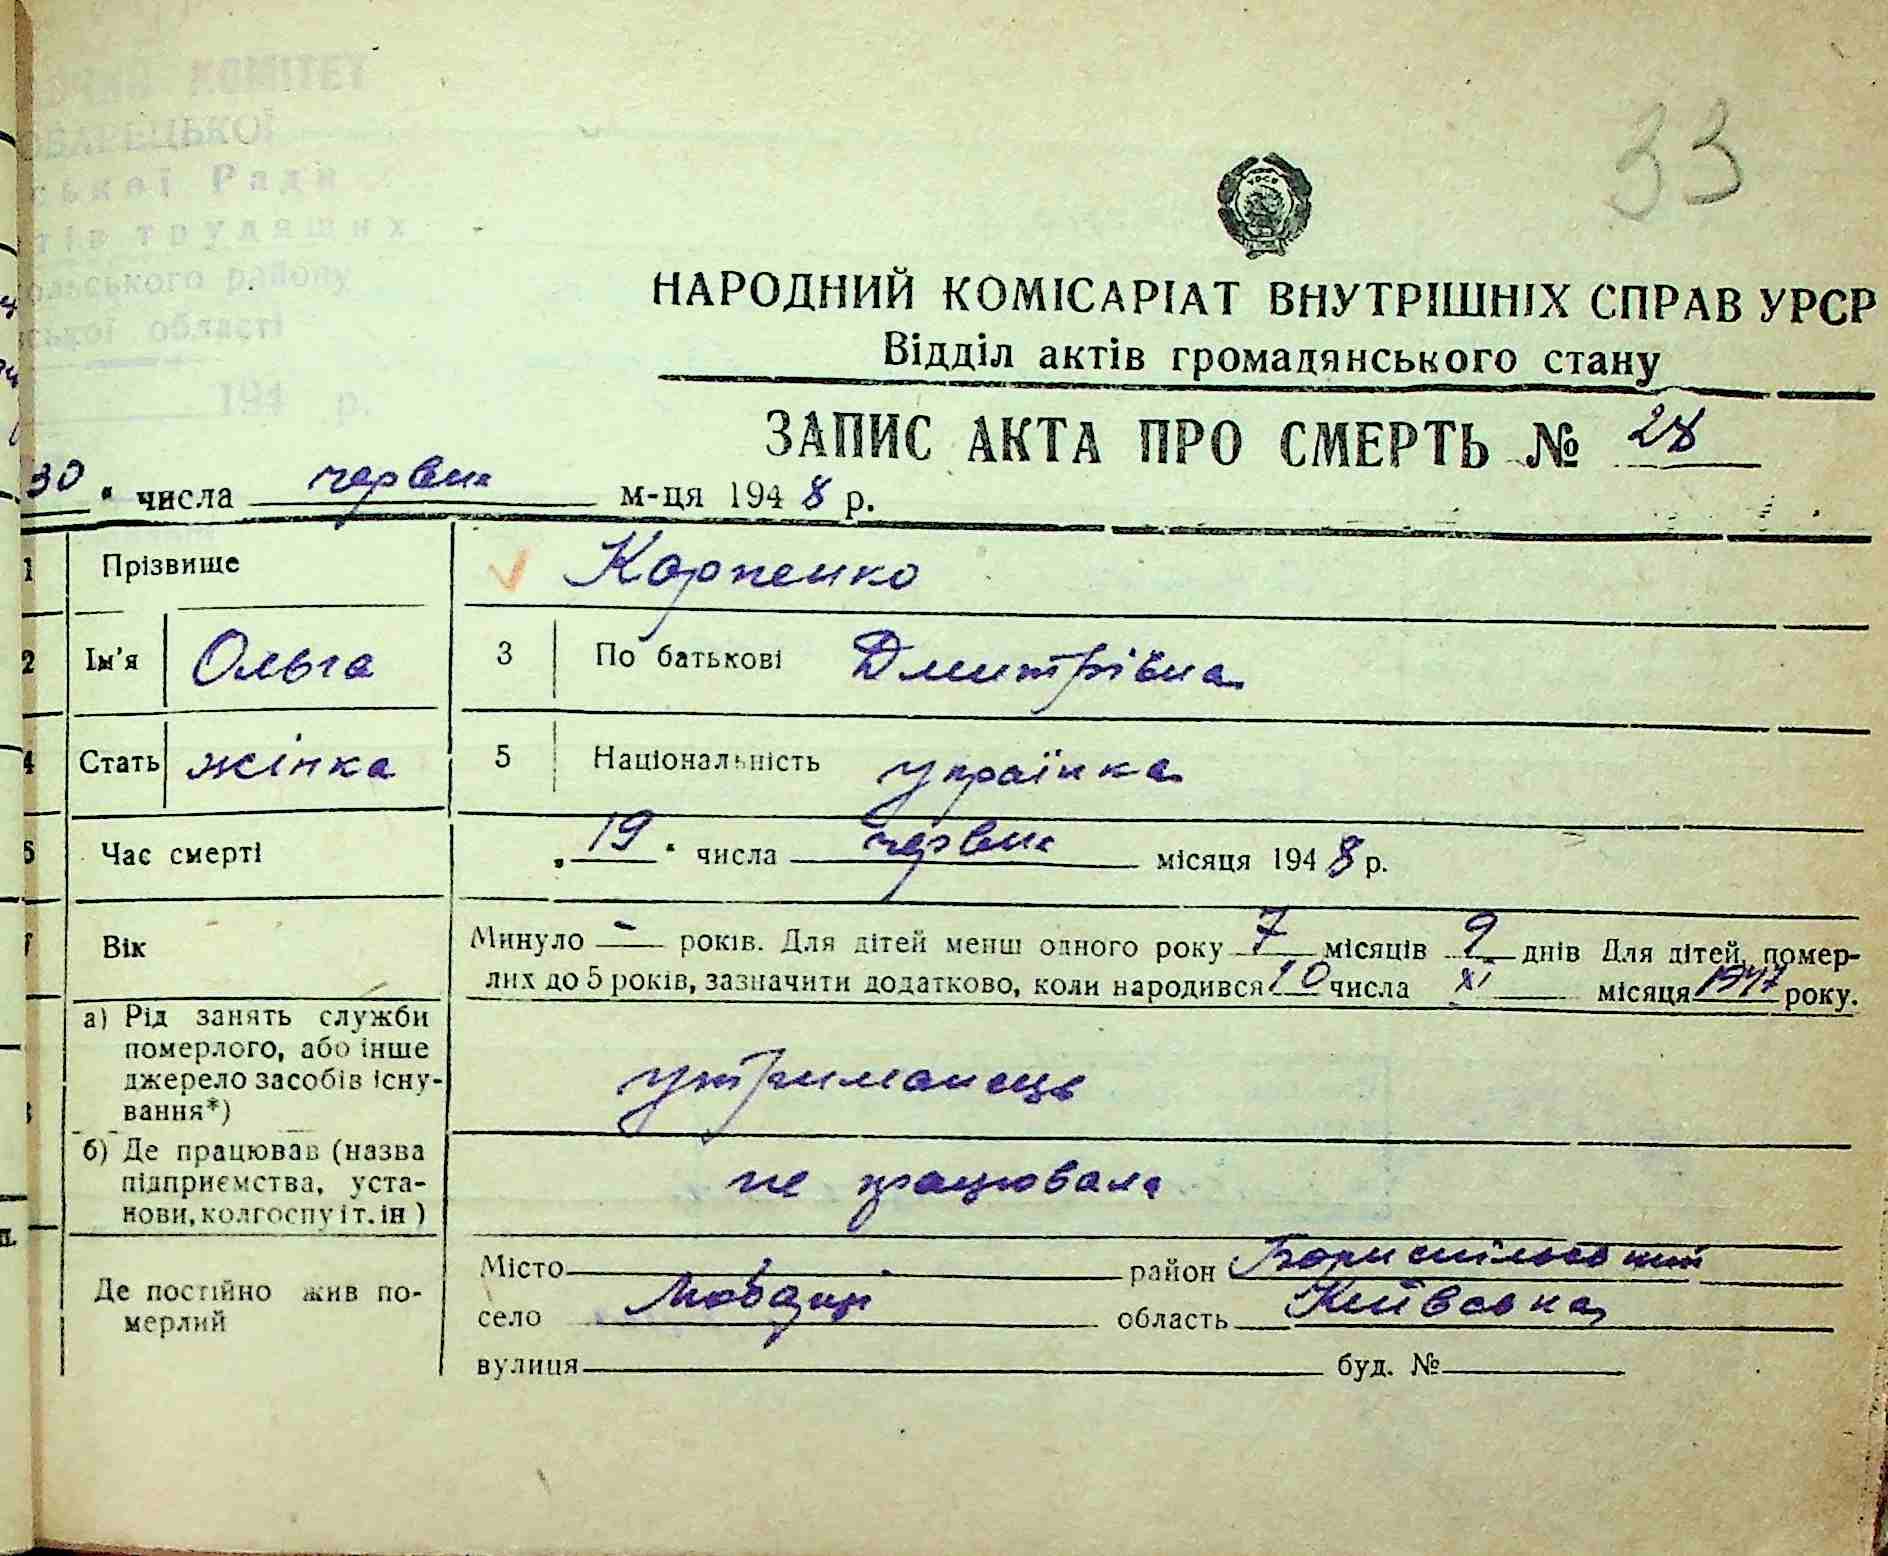 КОМІТЕТ
ської Ради
тів трудящих
ського району
ської області
194 р.
33
УРСР
НАРОДНИЙ КОМІСАРІАТ ВНУТРІШНІХ СПРАВ УРСР
Відділ актів громадянського стану
ЗАПИС АКТА ПРО СМЕРТЬ № 28
30 " числа червня м-ця 1948 р.
1 Прізвище Карпенко
2 Ім'я Ольга 3 По батькові Дмитрівна
4 Стать жінка 5 Національність українка
6 Час смерті „ 19 " числа червня місяця 1948 р.
7 Вік Минуло - років. Для дітей менш одного року 7 місяців 9 днів Для дітей, помер-
лих до 5 років, зазначити додатково, коли народився 10 числа XI місяця 1947 року.
а) Рід занять служби
померлого, або інше
джерело засобів існу-
вання*) утриманець
б) Де працював (назва
підприємства, уста-
нови, колгоспу і т. ін ) не працювала
Де постійно жив по-
мерлий
Місто район Бориспільський
село область Київська
вулиця буд. №